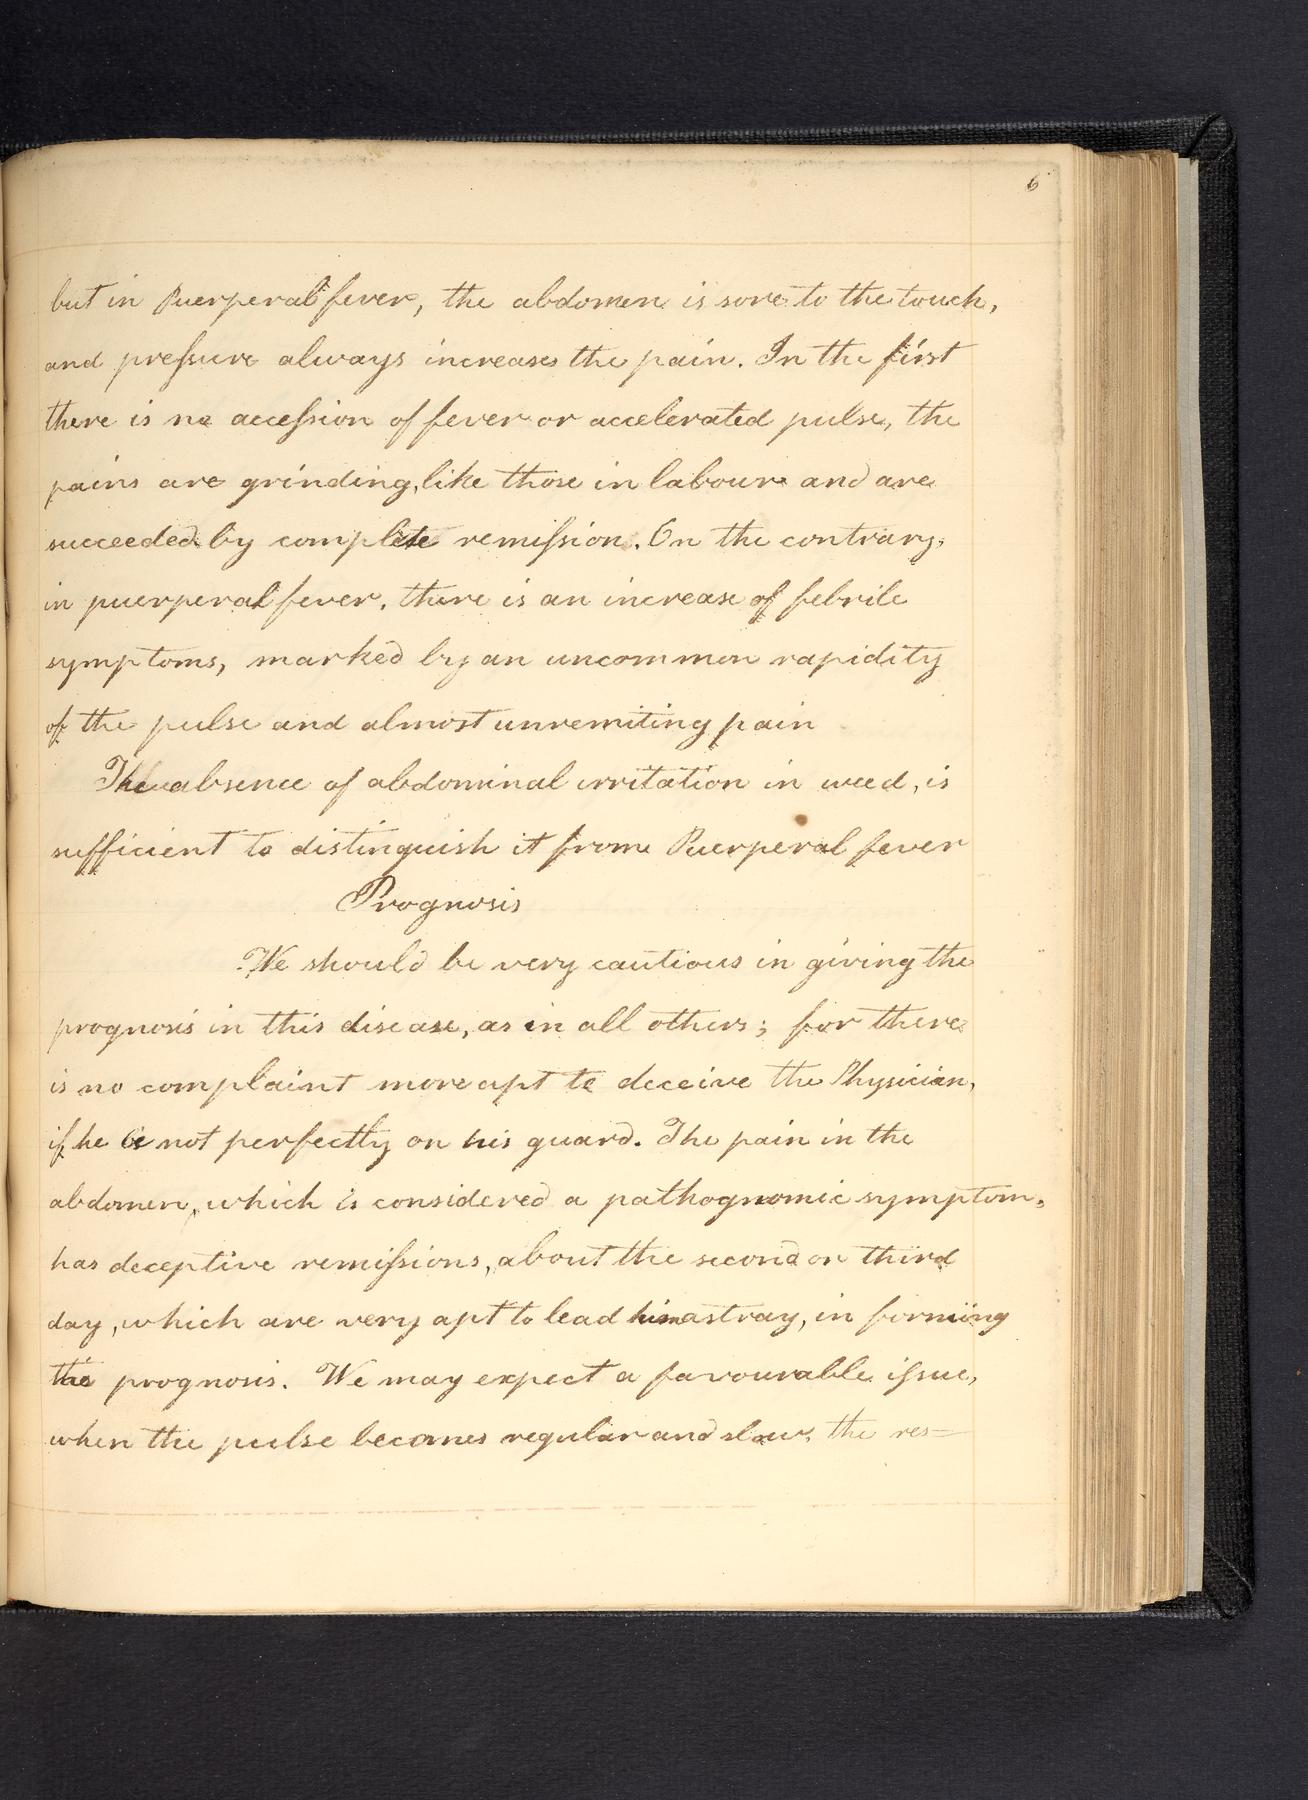 6
but in Puerperal fever, the abdomen is sore to the touch,
and preſsure always increases the pain. In the first
there is no acceſsion of fever or accelerated pulse, the
pains are grinding, like those in labour and are
succeeded by complete remiſsion. On the contrary,
in puerperal fever, there is an increase of febrile
symptoms, marked by an uncommon rapidity
of the pulse and almost unremiting pain
The absence of abdominal irritation in weed, is
sufficient to distinguish it from Puerperal fever
Prognosis
We should be very cautious in giving the
prognosis in this disease, as in all others; for there
is no complaint more apt to deceive the Physician,
if he be not perfectly on his guard. The pain in the
abdomen, which is considered a pathognomic symptom,
has deceptive remiſsions, about the second or third
day, which are very apt to lead him astray, in forming
the prognosis. We may expect a favourable iſsue,
when the pulse becomes regular and slow, the res=